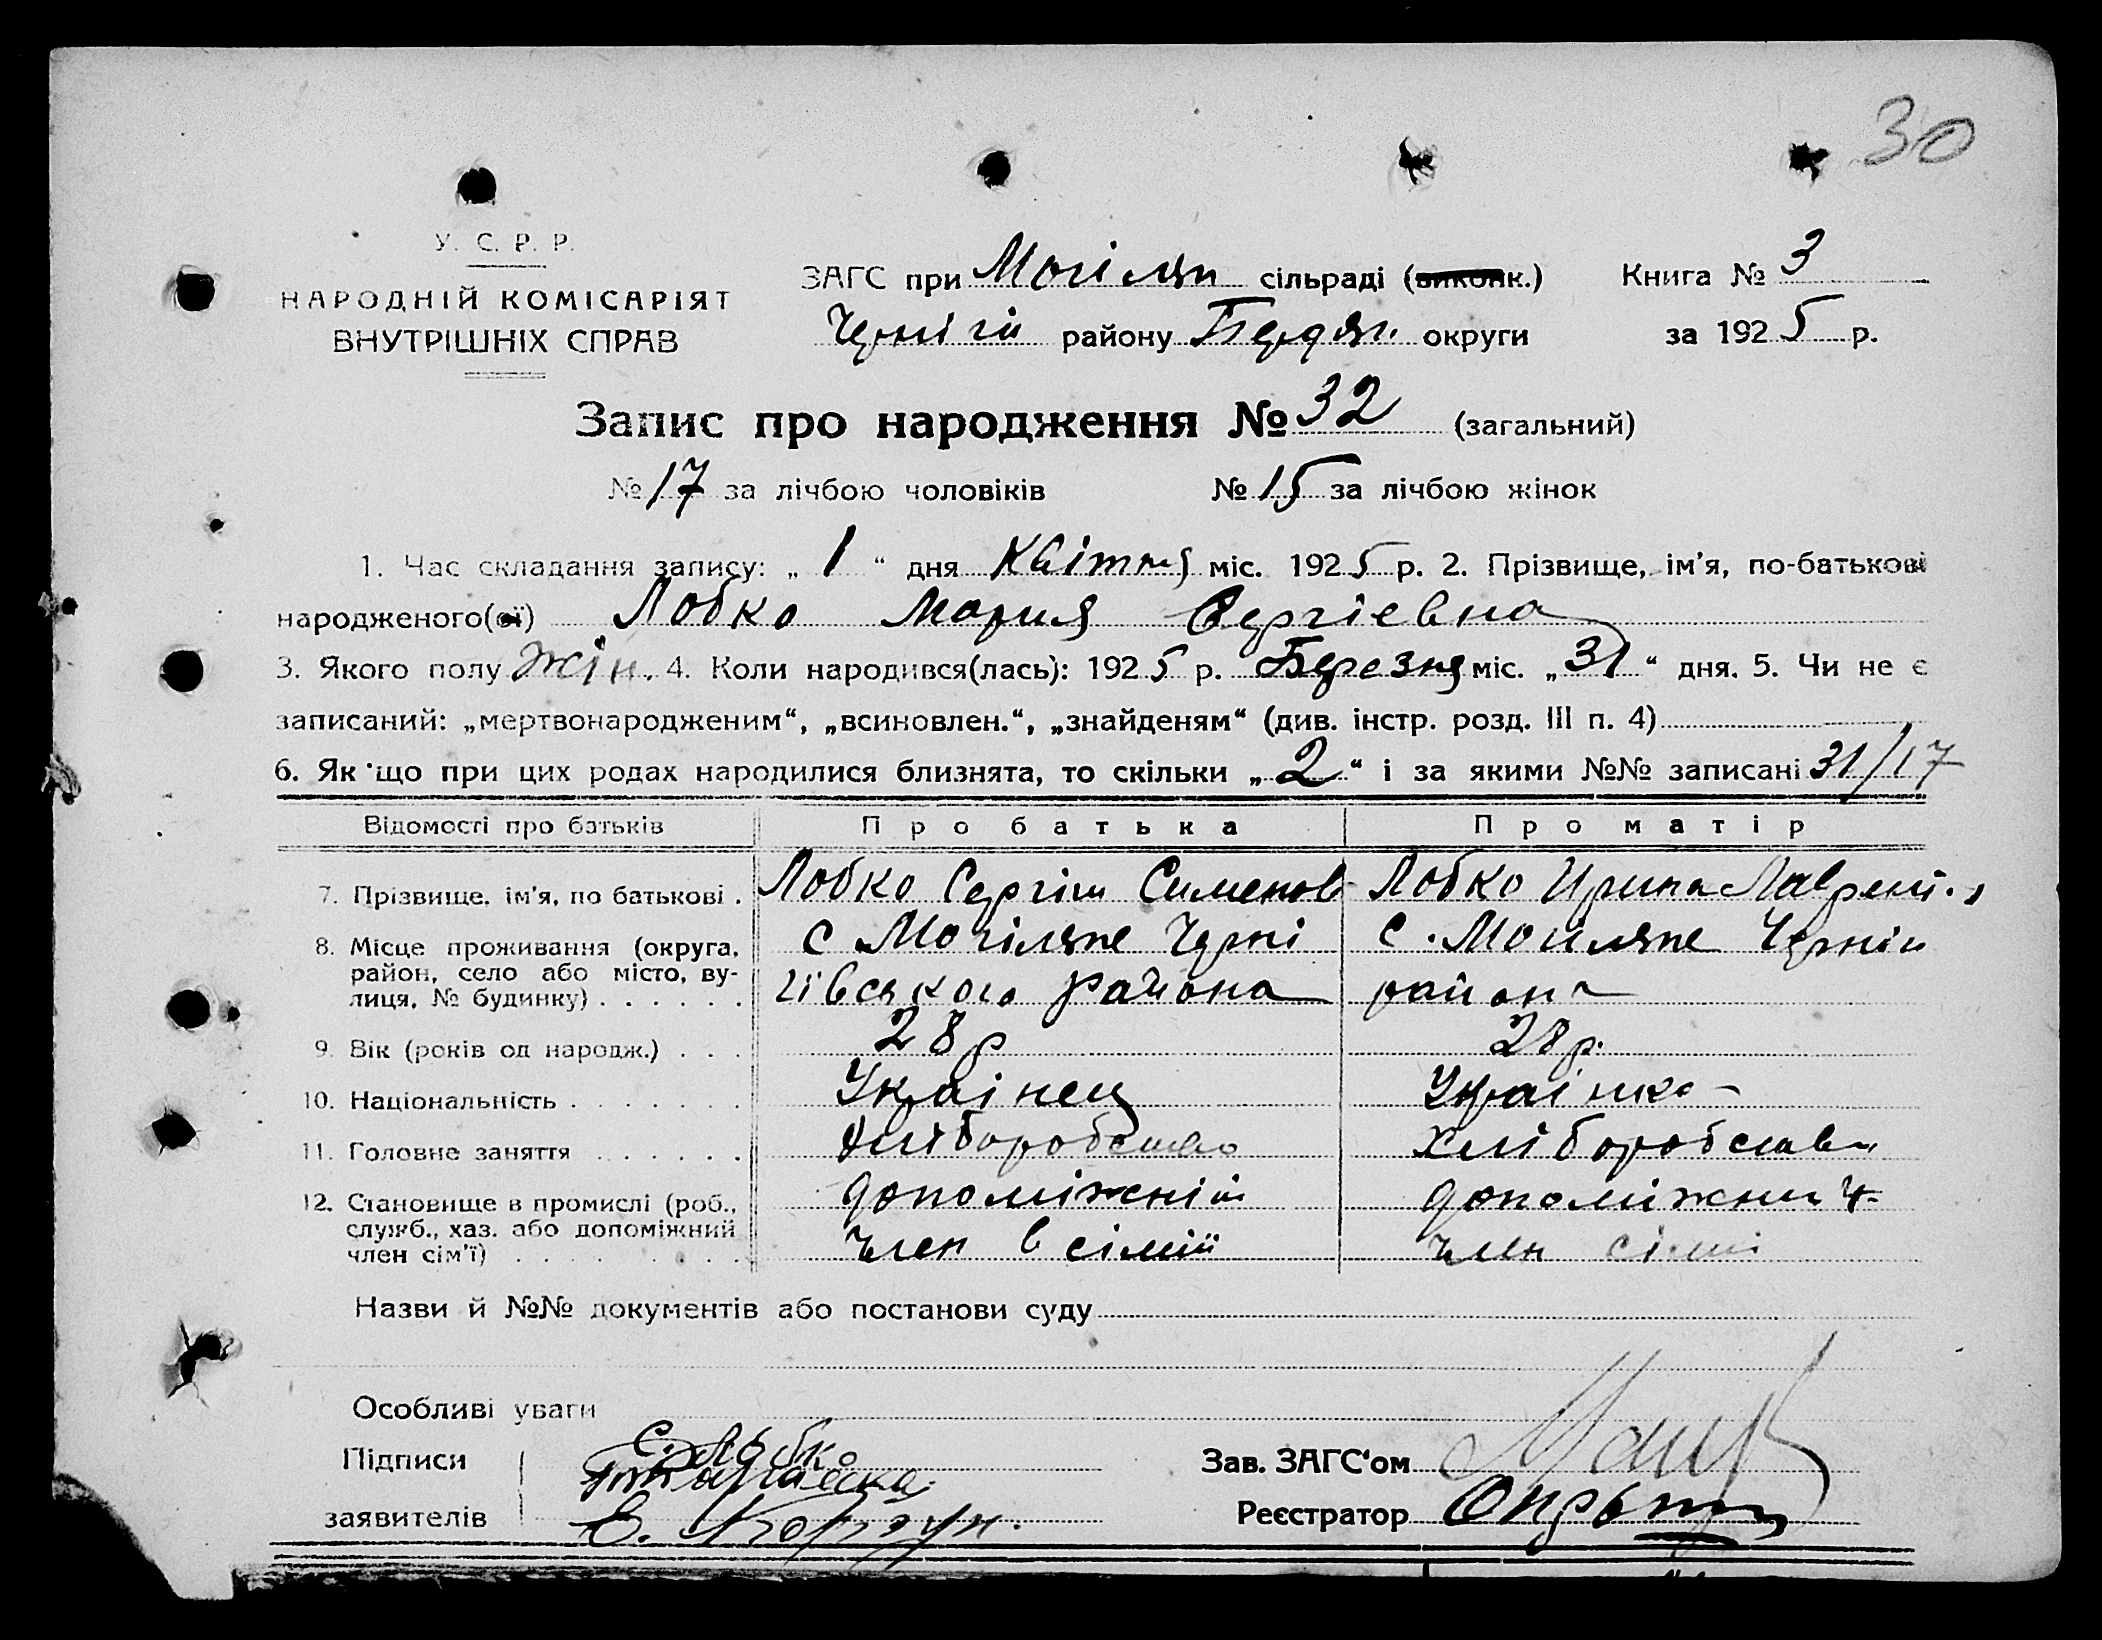 30
У. С. Р. Р.
НАРОДНІЙ КОМІСАРІЯТ
ВНУТРІШНІХ СПРАВ
ЗАГС при Могілян сільраді (виконк.) Книга № 3
Черніги району Бердян. округи за 1925 р.
Запис про народження № 32 (загальний)
№ 17 за лічбою чоловіків № 15 за лічбою жінок
1. Час складання запису: „ 1 “ дня Квітня міс. 1925 р. 2. Прізвище, ім'я, по-батькові
народженого(ої) Лобко Мария Сергіевна
3. Якого полу жін. 4. Коли народився(лась): 1925 р. Березня міс. „ 31 “ дня. 5. Чи не є
записаний: „мертвонародженим“, „всиновлен.“, „знайденям“ (див. інстр. розд. III п. 4)
6. Як що при цих родах народилися близнята, то скільки „ 2 “ і за якими №№ записані 31/17
Відомості про батьків Про батька Про матір
7. Прізвище, ім'я, по батькові . Лобко Сергіи Сименов Лобко Ирина Лаврент.
8. Місце проживання (округа, район, село або місто, вулиця, № будинку) с Могіляне Черні гівського района с. Могиляне Черніг района
9. Вік (років од народж.) 28 р 28 р.
10. Національність Украінец Украінка
11. Головне заняття Хліборобство Хліборобства
12. Становище в промислі (роб., служб., хаз. або допоміжний член сім'ї) допоміжній член в сімйі допоміжний член сімі
Назви й №№ документів або постанови суду
Особливі уваги
Підписи С. Лобко Зав. ЗАГС'ом
заявителів Е. Ковгун. Реєстратор